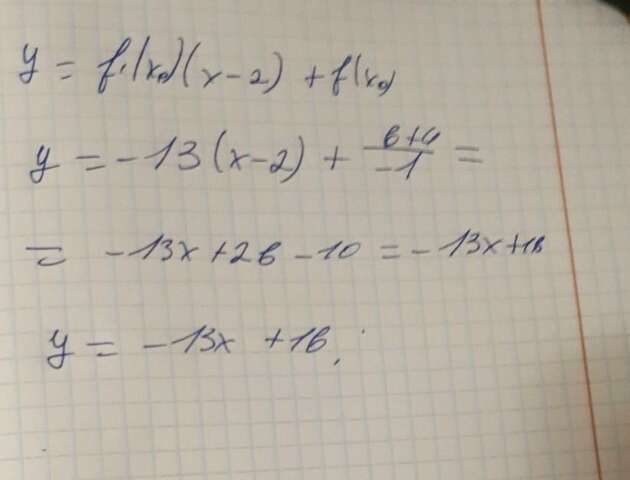 y = f'(x₀)(x-2) + f(x₀)
y = -13(x-2) + (6+4)/(-1) =
= -13x+26-10 = -13x+16
y = -13x +16;